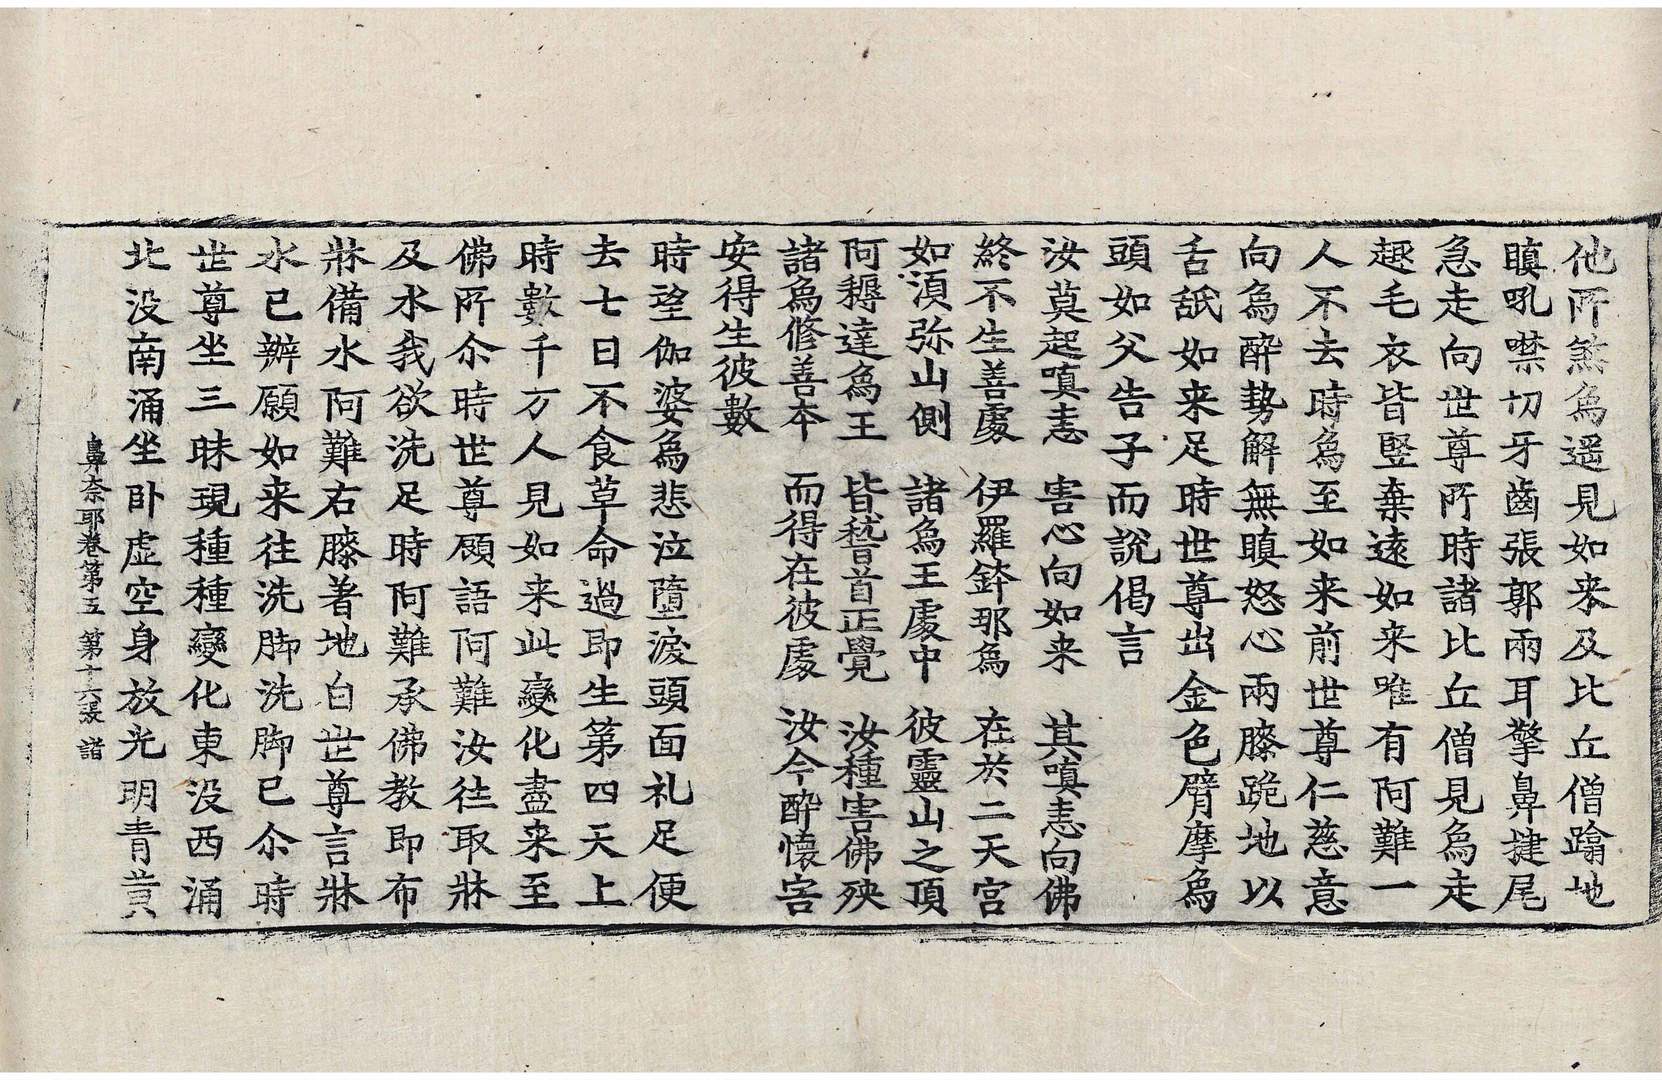 他所煞為遥見如来及比丘僧踰地
瞋吼噤切牙齒張郭兩耳擎鼻揵尾
急走向世尊所時諸比丘僧見為走
趣毛衣皆竪棄遠如来唯有阿難一
人不去時為至如来前世尊仁慈意
向為醉勢解無瞋怒心兩膝跪地以
舌舐如来足時世尊出金色臂摩為
頭如父告子而說偈言
汝莫起嗔恚　害心向如来　其嗔恚向佛
終不生善處　伊羅鉢那為　在於二天宮
如湏弥山側　諸為王處中　彼靈山之頂
阿耨達為王　皆嵇首正覺　汝種害佛殃
諸為修善本　而得在彼處　汝今醉懷害
安得生彼數
時㘴伽婆為悲泣墮淚頭面礼足便
去七日不食草命過即生第四天上
時數千万人見如来此變化盡来至
佛所尒時世尊顧語阿難汝往取牀
及水我欲洗足時阿難承佛教即布
牀備水阿難右膝著地白世尊言牀
水已辦願如来往洗脚洗脚已尒時
世尊坐三昧現種種變化東没西涌
北没南涌坐卧虚空身放光明青黄
鼻奈耶卷第五　第十六張　諧